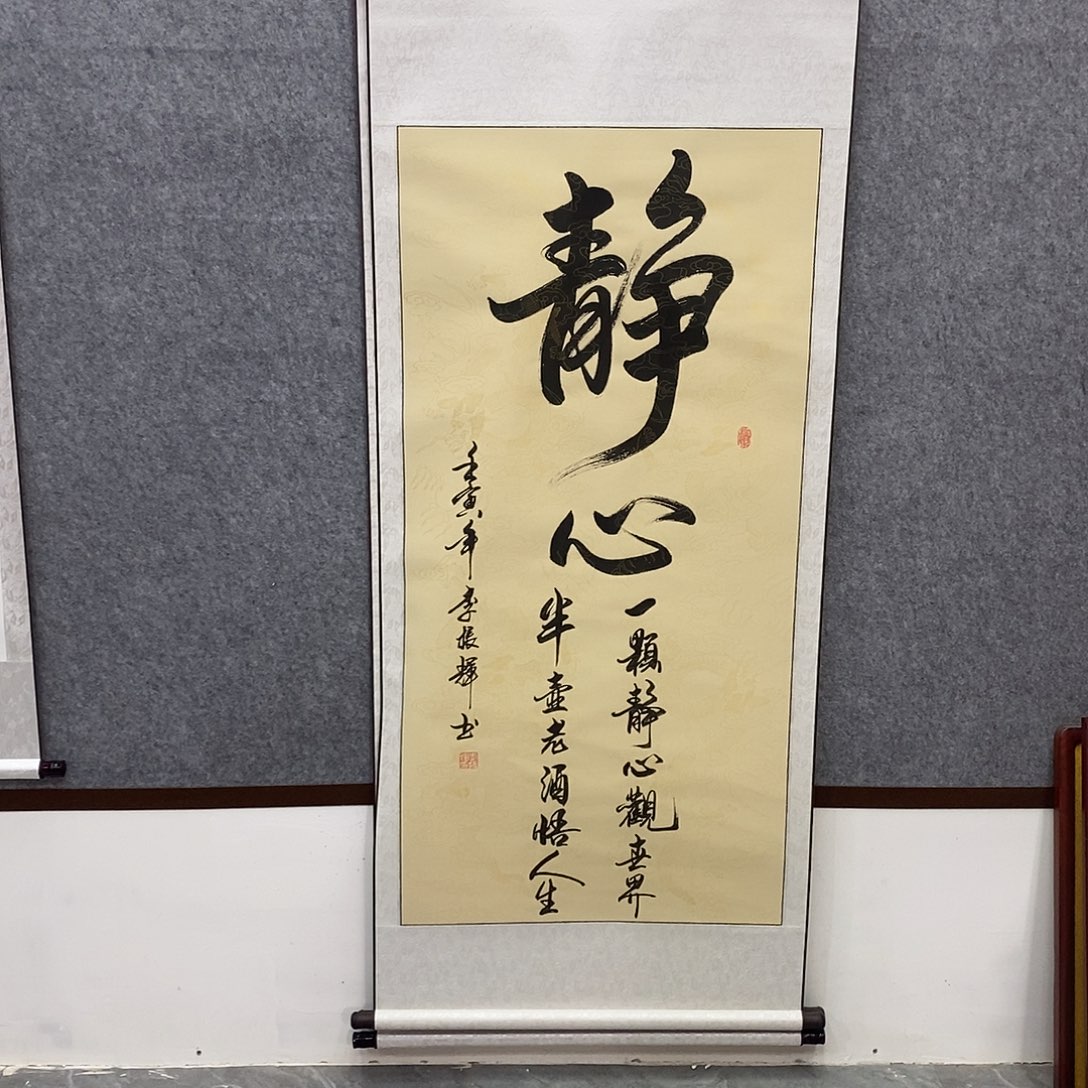 静心
一顆静心觀世界
半壺老酒悟人生
壬寅年李振輝书